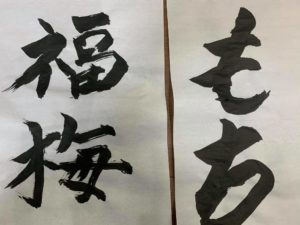 もち
福梅